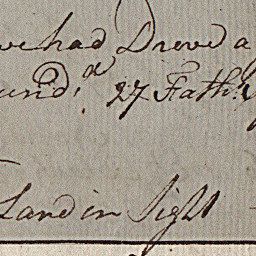 we had Drove a
und.d 27 Fath.s
Land in Sight